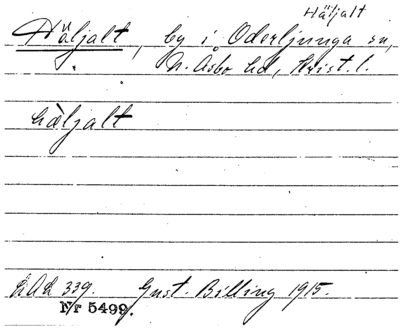 Häljalt
Häljalt, by i Oderljunga sn,
N. Åsbo hd, Krist. l.
hàljalt
LAL 339. Gust. Billing 1915.
Nr 5499.